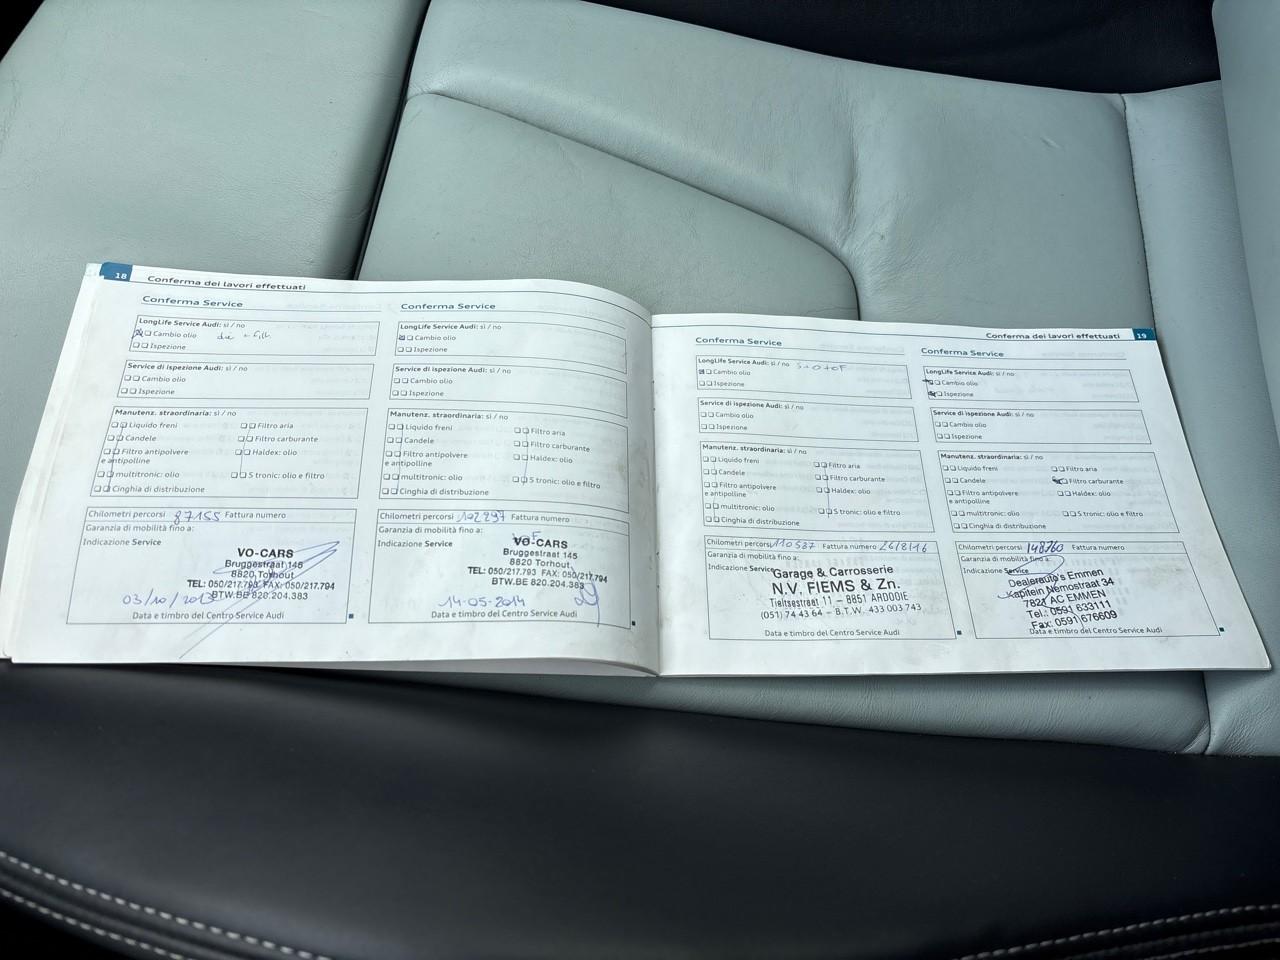 18 Conferma dei lavori effettuati
Conferma Service
LongLife Service Audi: sì / no
Cambio olio
Ispezione
Service di ispezione Audi: sì / no
Cambio olio
Ispezione
Manutenz. straordinaria: sì / no
Liquido freni
Filtro aria
Candele
Filtro carburante
Filtro antipolvere
e antipolline
Haldex: olio
multitronic: olio
S tronic: olio e filtro
Cinghia di distribuzione
Chilometri percorsi 87155 Fattura numero
Garanzia di mobilità fino a:
Indicazione Service
VO-CARS
Bruggestraat 145
8820 Torhout
TEL: 050/217.793 FAX: 050/217.794
BTW.BE 820.204.383
03/10/2013
Data e timbro del Centro Service Audi
Conferma Service
LongLife Service Audi: sì / no
Cambio olio
Ispezione
Service di ispezione Audi: sì / no
Cambio olio
Ispezione
Manutenz. straordinaria: sì / no
Liquido freni
Filtro aria
Candele
Filtro carburante
Filtro antipolvere
e antipolline
Haldex: olio
multitronic: olio
S tronic: olio e filtro
Cinghia di distribuzione
Chilometri percorsi 102297 Fattura numero
Garanzia di mobilità fino a:
Indicazione Service
VO-CARS
Bruggestraat 145
8820 Torhout
TEL: 050/217.793 FAX: 050/217.794
BTW.BE 820.204.383
14-05-2014
Data e timbro del Centro Service Audi
Conferma dei lavori effettuati 19
Conferma Service
LongLife Service Audi: sì / no
Cambio olio
Ispezione
Service di ispezione Audi: sì / no
Cambio olio
Ispezione
Manutenz. straordinaria: sì / no
Liquido freni
Filtro aria
Candele
Filtro carburante
Filtro antipolvere
e antipolline
Haldex: olio
multitronic: olio
S tronic: olio e filtro
Cinghia di distribuzione
Chilometri percorsi 110587 Fattura numero 26/8/16
Garanzia di mobilità fino a:
Indicazione Service
Garage & Carrosserie
N.V. FIEMS & Zn.
Tieltsestraat 11 – 8851 ARDOOIE
(051) 74 43 64 – B.T.W. 433 003 743
Data e timbro del Centro Service Audi
Conferma Service
LongLife Service Audi: sì / no
Cambio olio
Ispezione
Service di ispezione Audi: sì / no
Cambio olio
Ispezione
Manutenz. straordinaria: sì / no
Liquido freni
Filtro aria
Candele
Filtro carburante
Filtro antipolvere
e antipolline
Haldex: olio
multitronic: olio
S tronic: olio e filtro
Cinghia di distribuzione
Chilometri percorsi 148760 Fattura numero
Garanzia di mobilità fino a:
Indicazione Service
Dealerauto's Emmen
Kapitein Nemostraat 34
7821 AC EMMEN
Tel.: 0591 633111
Fax: 0591 676609
Data e timbro del Centro Service Audi